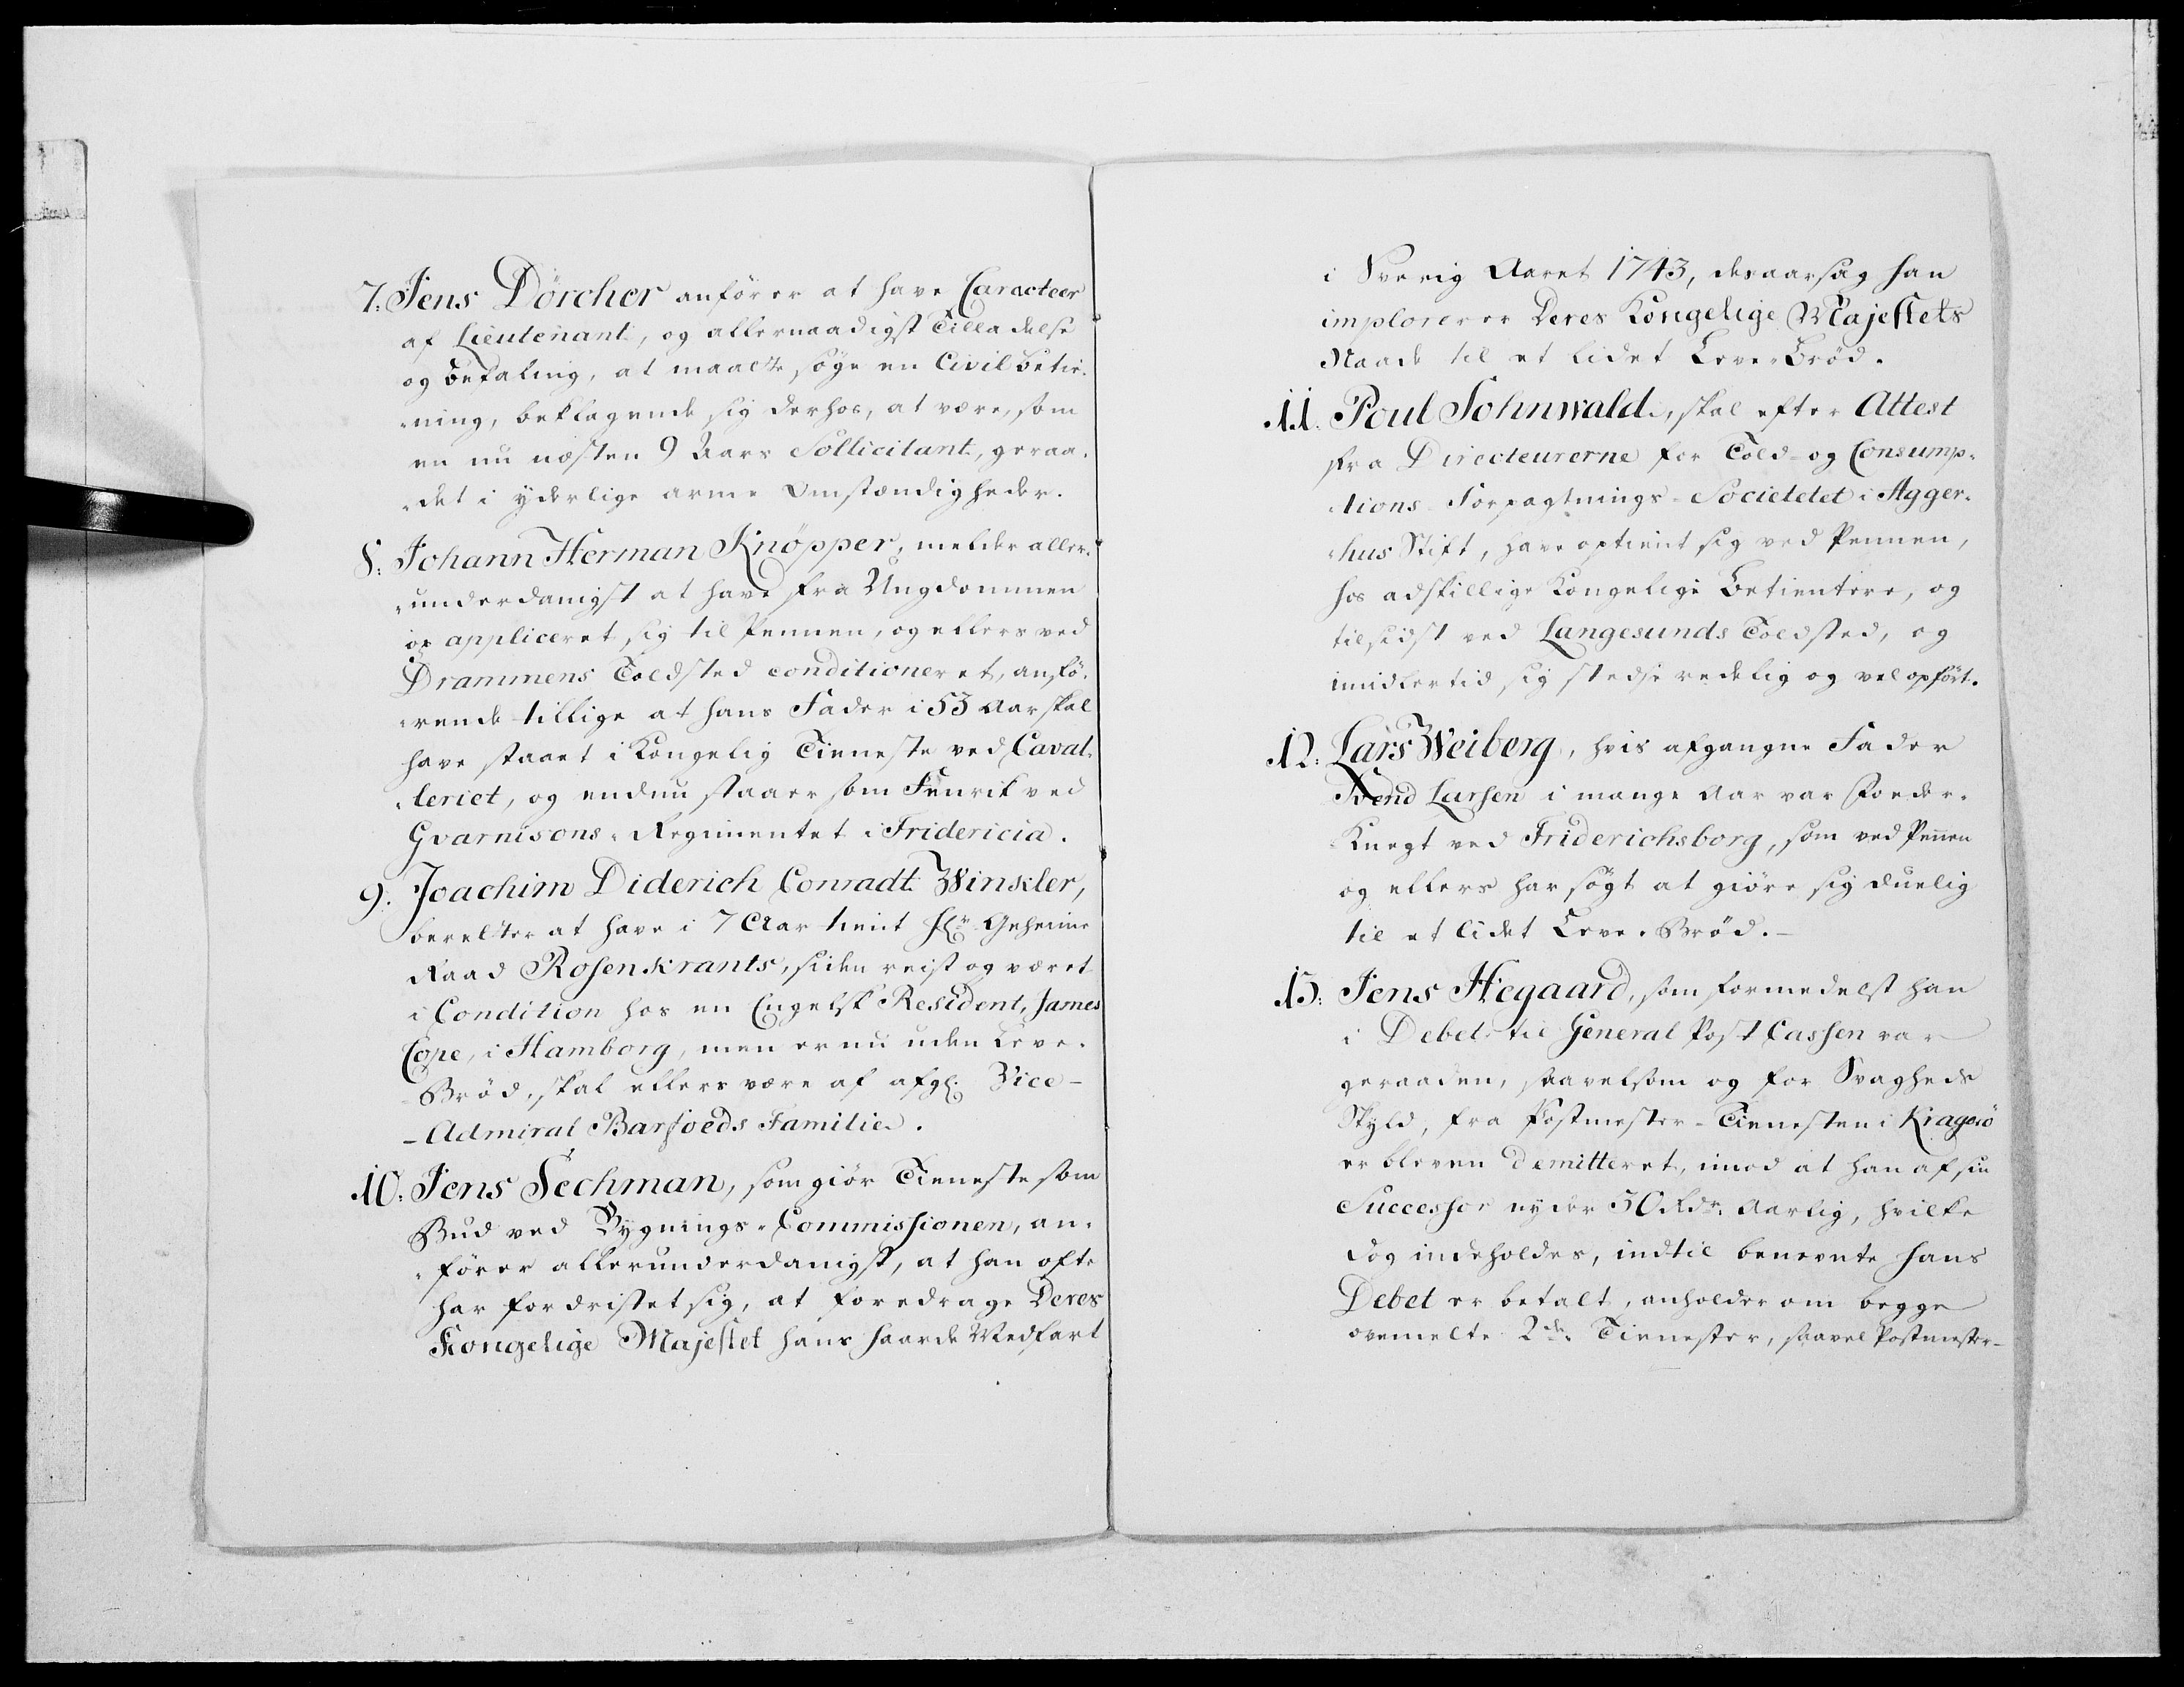 7. Jens Dörcher anförer at have Caracteer
af Lieutenant, og allernaadigst Tilladelse
og Befaling, at maatte söge en Civil betie-
-ning, beklagende sig derhos, at være, som
en nu næsten 9 Aars Sollicitant, geraa-
-det i yderlige arme Omstændigheder.
8. Johann Herman Knöpper, melder aller-
-underdanigst at have fra Ungdommen
op appliceret sig til Pennen, og ellers ved
Drammens Toldsted conditioneret, anfö-
-rende tillige at hans Fader i 53 Aar skal
have staaet i Kongelig Tieneste ved Caval-
-leriet, og endnu staaer som Fenrik ved
Gvarnisons-Regimentet i Fridericia.
9. Joachim Diderich Conradt Winkler,
beretter at have i 7 Aar tient Hr Geheime
Raad Rosenkrants, siden reist og været
i Condition hos en Engelsk Resident, James
Cope, i Hamborg, men er nu uden Leve-
-Brød, skal ellers være af afg: Vice-
-Admiral Barfoeds Familie.
10. Jens Fechman, som giör Tieneste som
Bud ved Bygnings-Commissionen, an-
-förer allerunderdanigst, at han ofte
har fordristet sig, at foredrage Deres
Kongelige Majestet hans haarde Medfart
i Sverig Aaret 1743, desaarsag han
implorerer Deres Kongelige Majestets
Naade til et lidet Leve-Bröd.
11. Poul Sohnwald, skal efter Attest
fra Directeurerne for Told- og Consump-
-tions-Forpagtnings-Societetet i Agger-
-hus Stift, have optient sig ved Pennen,
hos adskillige Kongelige Betientere, og
tilsidst ved Langesunds Toldsted, og
imidlertid sig stedse redelig og vel opfört.
12. Lars Weiberg, hvis afgangne Fader
Svend Larsen i mange Aar var Foeder-
Knegt ved Friderichsborg, som ved Pennen
og ellers har sögt at giöre sig duelig
til et lidet Leve-Bröd.-
13. Jens Hegaard, som formedelst han
i Debet til General Post Cassen var
geraaden, saavelsom og for Svagheds
Skyld, fra Postmester-Tienesten i Krageröe
er bleven demitteret, imod at han af sin
Successor nyder 50 Rdr. Aarlig, hvilke
dog indeholdes, indtil benevnte hans
Debet er betalt, anholder om begge
ovemelte 2de Tienester, saavel Postmester-